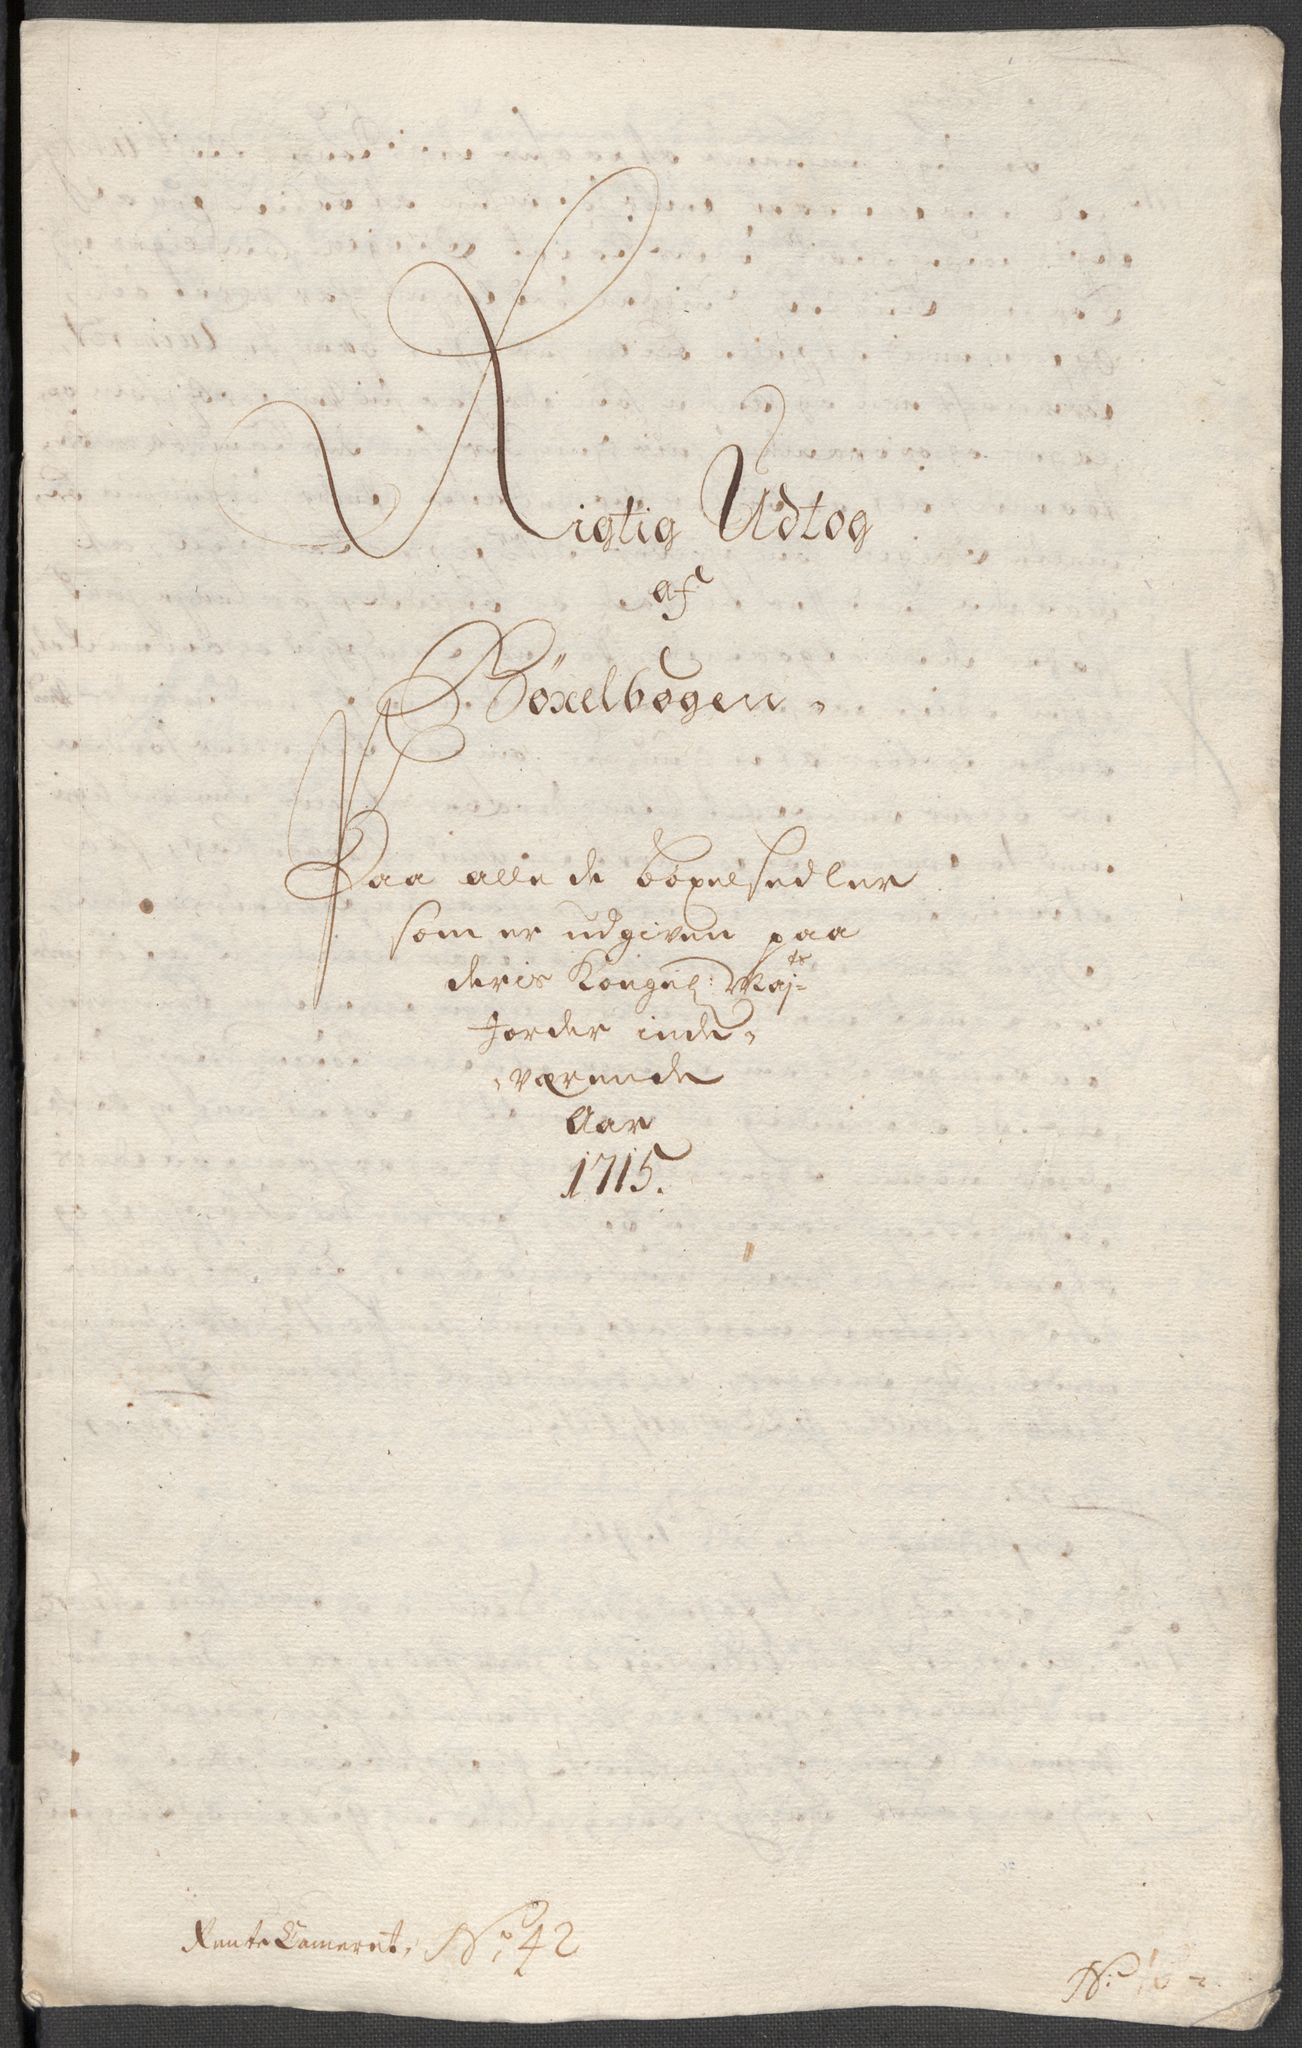 Rigtig Udtog
af
Bøxelbogen.
Paa alle de bøxelsedler
som er udgiven paa
deris Kongel: Maj=ts
Jorder inde=
=værende
Aar
1715.
Rente Cameret, No: 42
No: